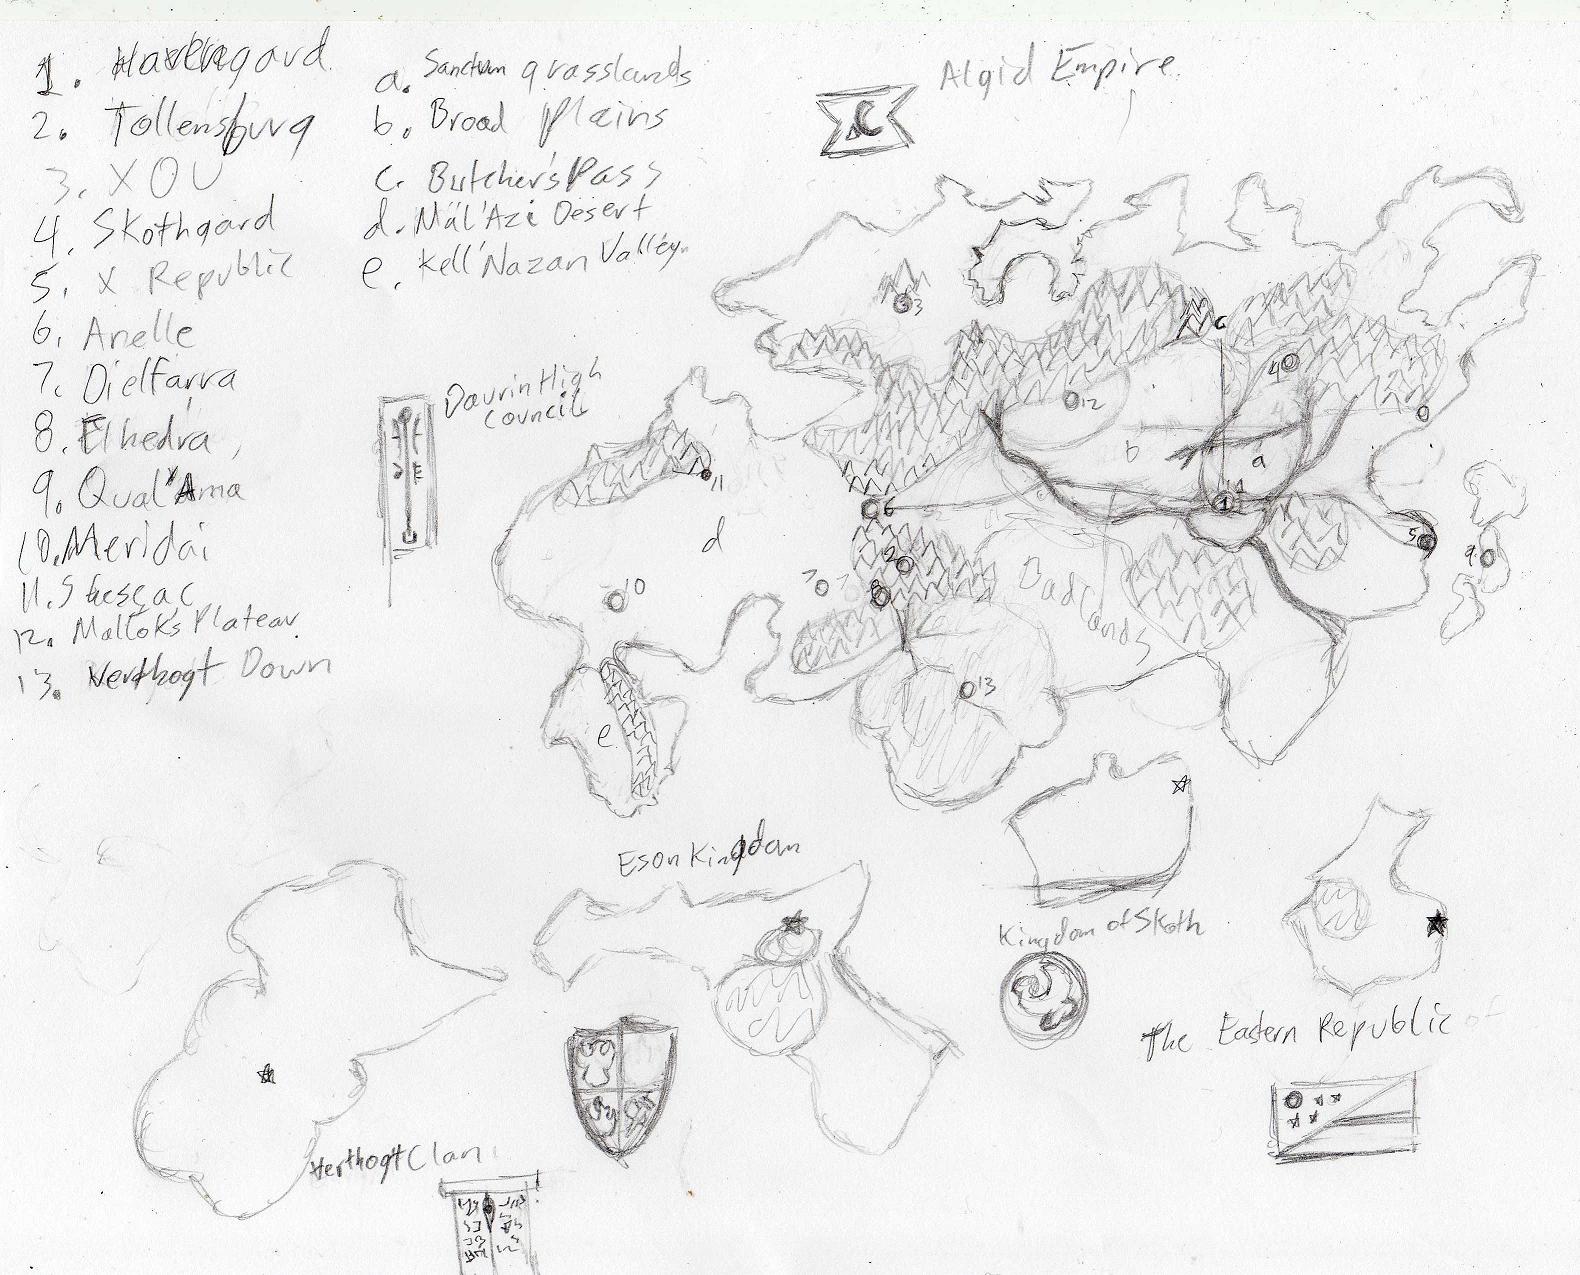 1. Havengard
2. Tollensburg
3. X O U
4. Skothgard
5. X Republic
6. Anelle
7. Dielfarra
8. Elhedra,
9. Qual'Ama
10. Meridai
11. Shesgac
12. Mallok's Plateau
13. Verthogt Down
a. Sanctum grasslands
b. Broad Plains
c. Butcher's Pass
d. Mál'Azi Desert
e. Kell'Nazan Valley
Algid Empire
C
Daurin High
Council
3
c
4
12
b
a
1
11
d
6
5
9
2
7
8
10
Badlands
13
e
Eson Kingdom
Kingdom of Skoth
The Eastern Republic of
Verthogt Clan